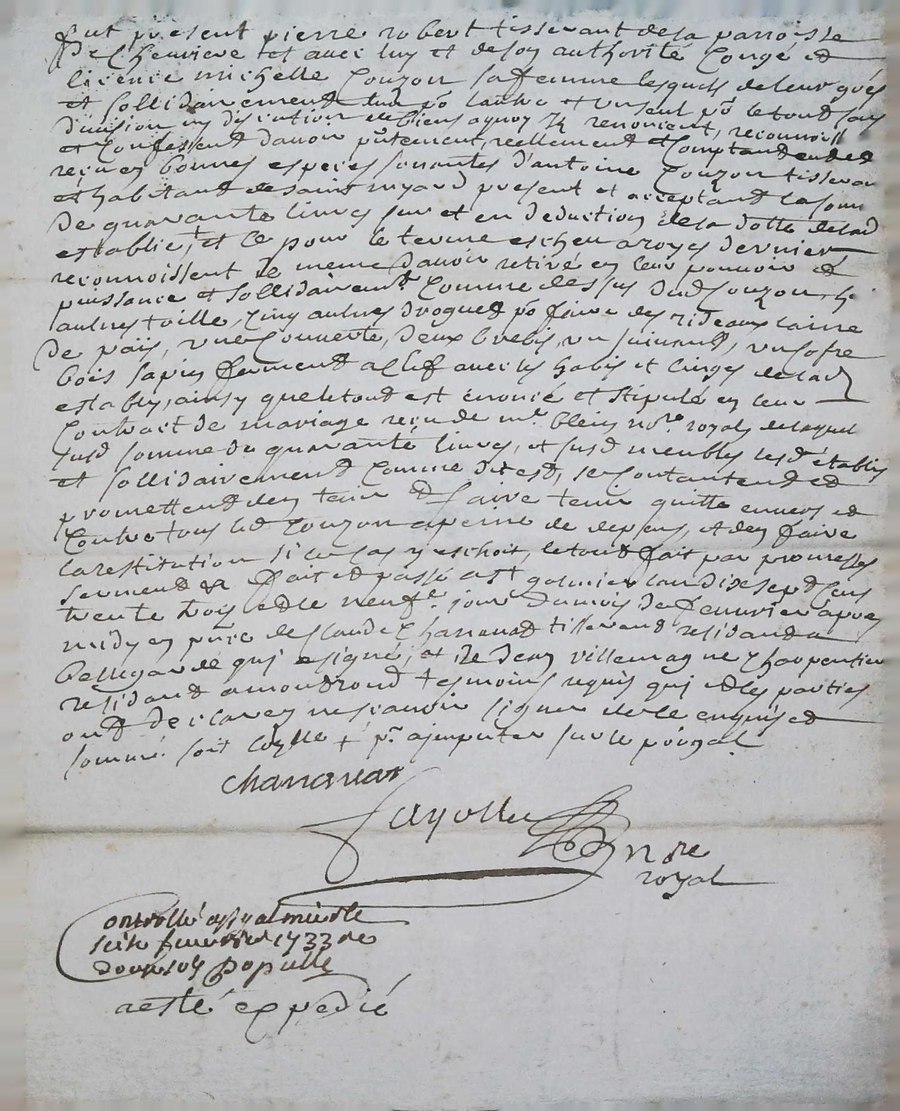 fut présent pierre robert tisserant de la parroisse
De Cheuriere et avec luy et de son authorité Congé et
licence michelle Couzon sa femme lesquels de leur grés
et sollidairement l'un po l'autre et un seul po le tout sans
division ny discution de biens a quoy ils renoncent, reconnoiss
et Confessent d'auoir pntement, reellement et Comptandt
reçu en bonnes especes sonantes d'antoine Couzon tisseran
et habitant de saint myard present et acceptant la som
De quarante liures sur et en deduction de la dotte de lad
establie + et ce pour le terme escheu a roys dernier
reconnoissent de meme d'auoir retiré en leur pouuoir et
puissance et sollidairemt Comme dessus dud Couzon, 
aulnes toille, cinq aulnes droguet po faire des rideaux laine
De païs, une Couuerte, deux brebis, un suiuant, un cofre
bois sapin fermant a clef auec les habis et linges de lad
establie, ainsy que le tout est énoncé et stipulé en leur
Contract de mariage reçu de me blein nore royal de laquel
susd somme de quarante liures, et susd meubles lesd établis
et sollidairement Comme dit est, se Contantent et
promettent d'en tenir et faire tenir quitte enuers et
Contre tous led Couzon a peine de depens, et d'en faire
la restitution si le cas y eschoit, le tout fait par promesses
serment & fait et passé a st galmier l'an dix sept Cens
trente trois et le neufe jour du mois de feurier apres
midy en pnce de Claude Chananat tisserand residant a
bellegarde qui a signé, et de Jean Villemagne Charpentier
residant a montrond tesmoins requis qui et les parties
ont declarez ne scauoir signer de ce enquis et
sommé. soit Controllé + pr ajemputer sur le principal
chananat
fayolle
nore
royal
Controllé a st galmier le
seize feurier 1733 re
douze sols populle
a esté expedié